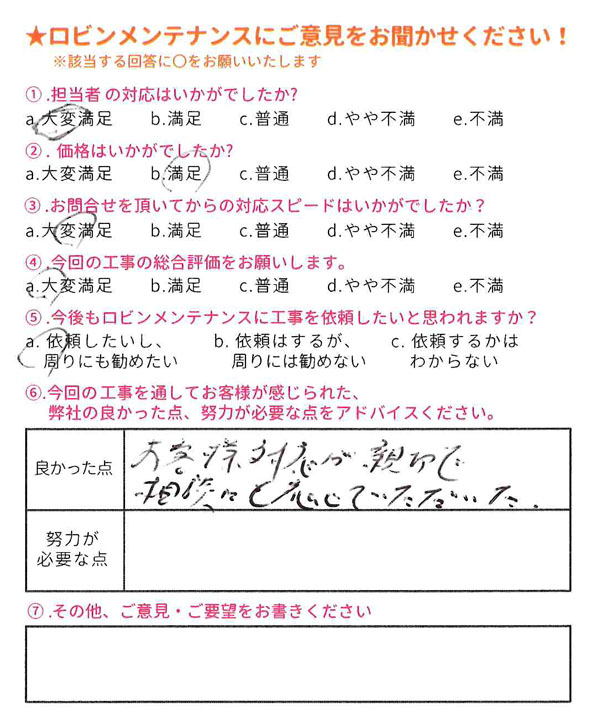 ★ロビンメンテナンスにご意見をお聞かせください！
※該当する回答に〇をお願いいたします
① .担当者 の対応はいかがでしたか?
a.大変満足 b.満足 c.普通 d.やや不満 e.不満
② . 価格はいかがでしたか?
a.大変満足 b.満足 c.普通 d.やや不満 e.不満
③ .お問合せを頂いてからの対応スピードはいかがでしたか？
a.大変満足 b.満足 c.普通 d.やや不満 e.不満
④ .今回の工事の総合評価をお願いします。
a.大変満足 b.満足 c.普通 d.やや不満 e.不満
⑤ .今後もロビンメンテナンスに工事を依頼したいと思われますか？
a. 依頼したいし、 b. 依頼はするが、 c. 依頼するかは
周りにも勧めたい 周りには勧めない わからない
⑥.今回の工事を通してお客様が感じられた、
弊社の良かった点、努力が必要な点をアドバイスください。
良かった点
お客様対応が親切で
相談にも応じていただいた.
努力が
必要な点
⑦ .その他、ご意見・ご要望をお書きください